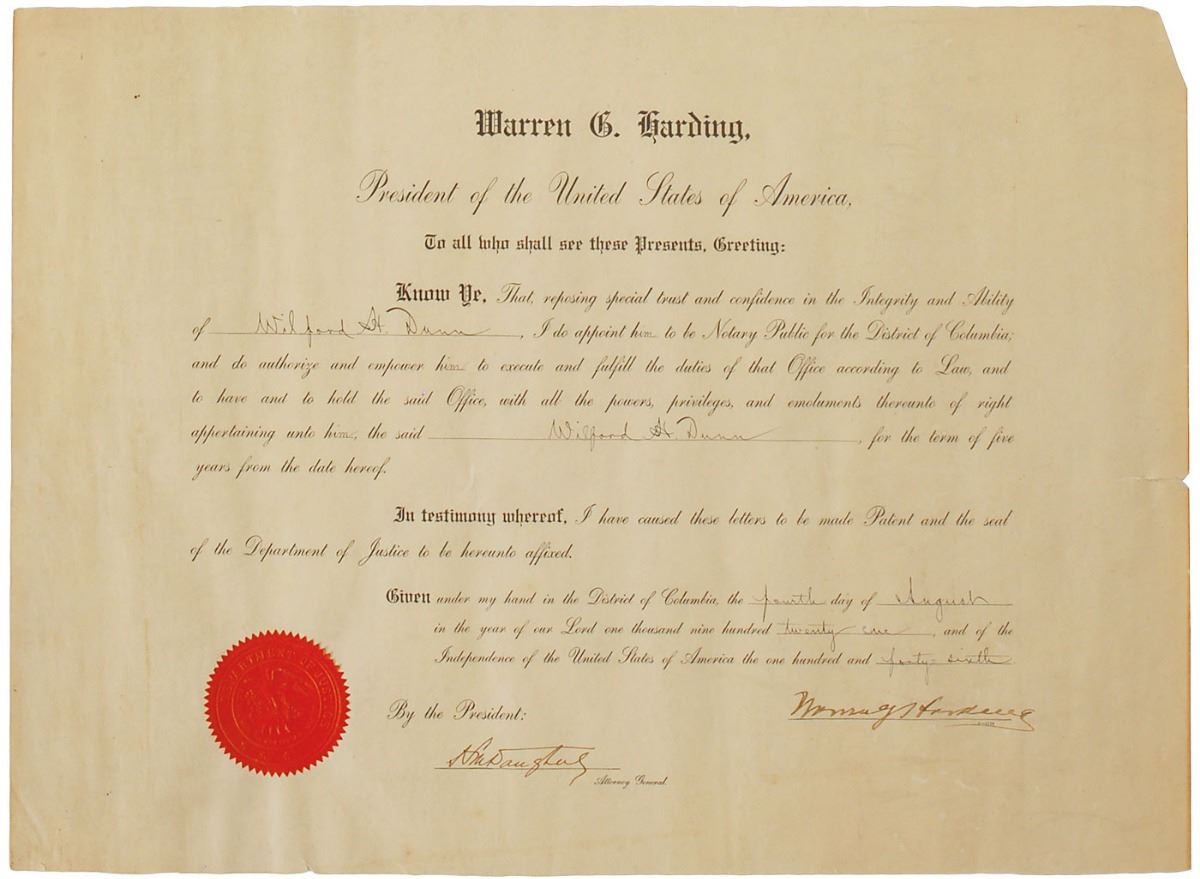 Warren G. Harding,
President of the United States of America,
To all who shall see these Presents, Greeting:
Know Ye, That, reposing special trust and confidence in the Integrity and Ability
of Wilford H. Dunn, I do appoint him to be Notary Public for the District of Columbia;
and do authorize and empower him to execute and fulfill the duties of that Office according to Law, and
to have and to hold the said Office, with all the powers, privileges, and emoluments thereunto of right
appertaining unto him, the said Wilford H. Dunn, for the term of five
years from the date hereof.
In testimony whereof, I have caused these letters to be made Patent and the seal
of the Department of Justice to be hereunto affixed.
Given under my hand in the District of Columbia, the fourth day of August
in the year of our Lord one thousand nine hundred twenty one, and of the
Independence of the United States of America the one hundred and forty-sixth
By the President:
Warren G Harding
HM Daugherty
Attorney General.